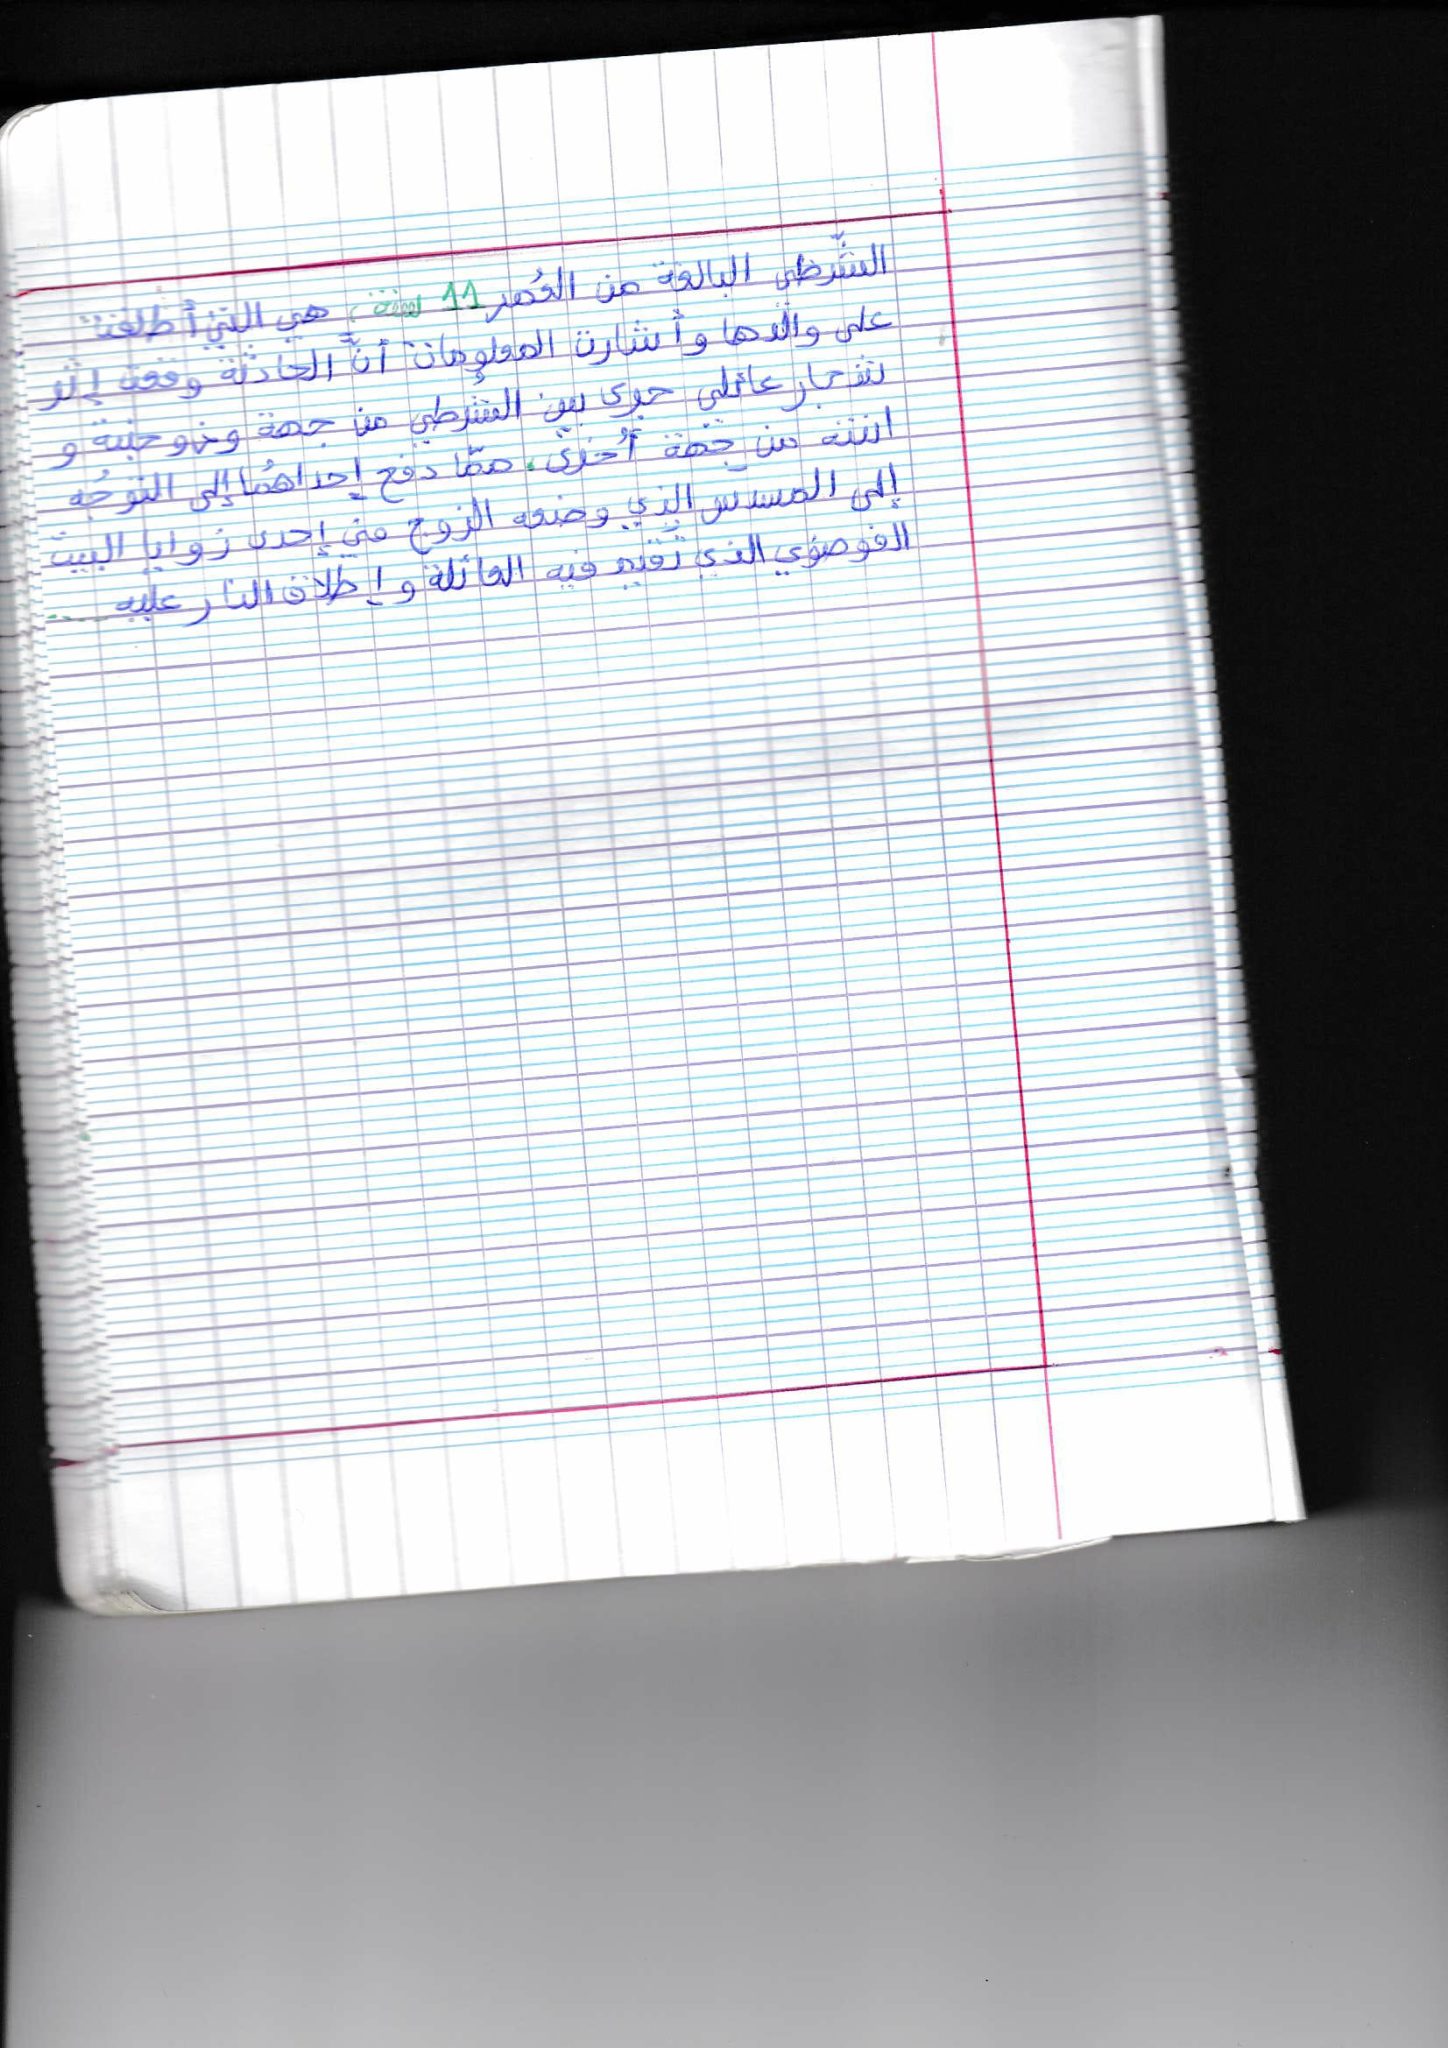 الشّرطي البالغة من العُمر 11 سنة، هي التي أطلقت
على والدها وأشارت المعلومات أنّ الحادثة وقعت إثر
شجار عائلي جرى بين الشرطي من جهة وزوجته و
ابنته من جهة أُخرى. ممّا دفع إحداهُما إلى التوجُه
إلى المسدس الذي وضعه الزوج في إحدى زوايا البيت
الفوضوي الذي تقيم فيه العائلة وإطلاق النار عليه ....